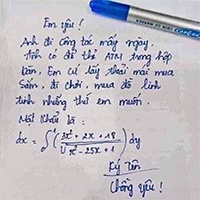 Em yêu!
Anh đi công tác mấy ngày.
Anh có để thẻ ATM trong hộp
bàn, Em cứ lấy thoải mái mua
sắm, đi chơi, mua đồ linh
tinh những thứ em muốn.
Mật khẩu là:
dx = ₀∫⁴ (3x² + 2x + 18 / √x² - 25x + 1) dy
Ký tên
Chồng yêu!